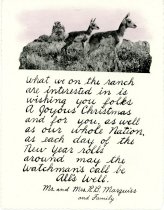 What we on the ranch
are interested in is
wishing you folks
a Joyous Christmas
and for you, as well
as our whole Nation,
as each day of the
New Year rolls
around may the
Watchman's call be
All's Well.
Mr. and Mrs. R.B. Marquiss
and Family